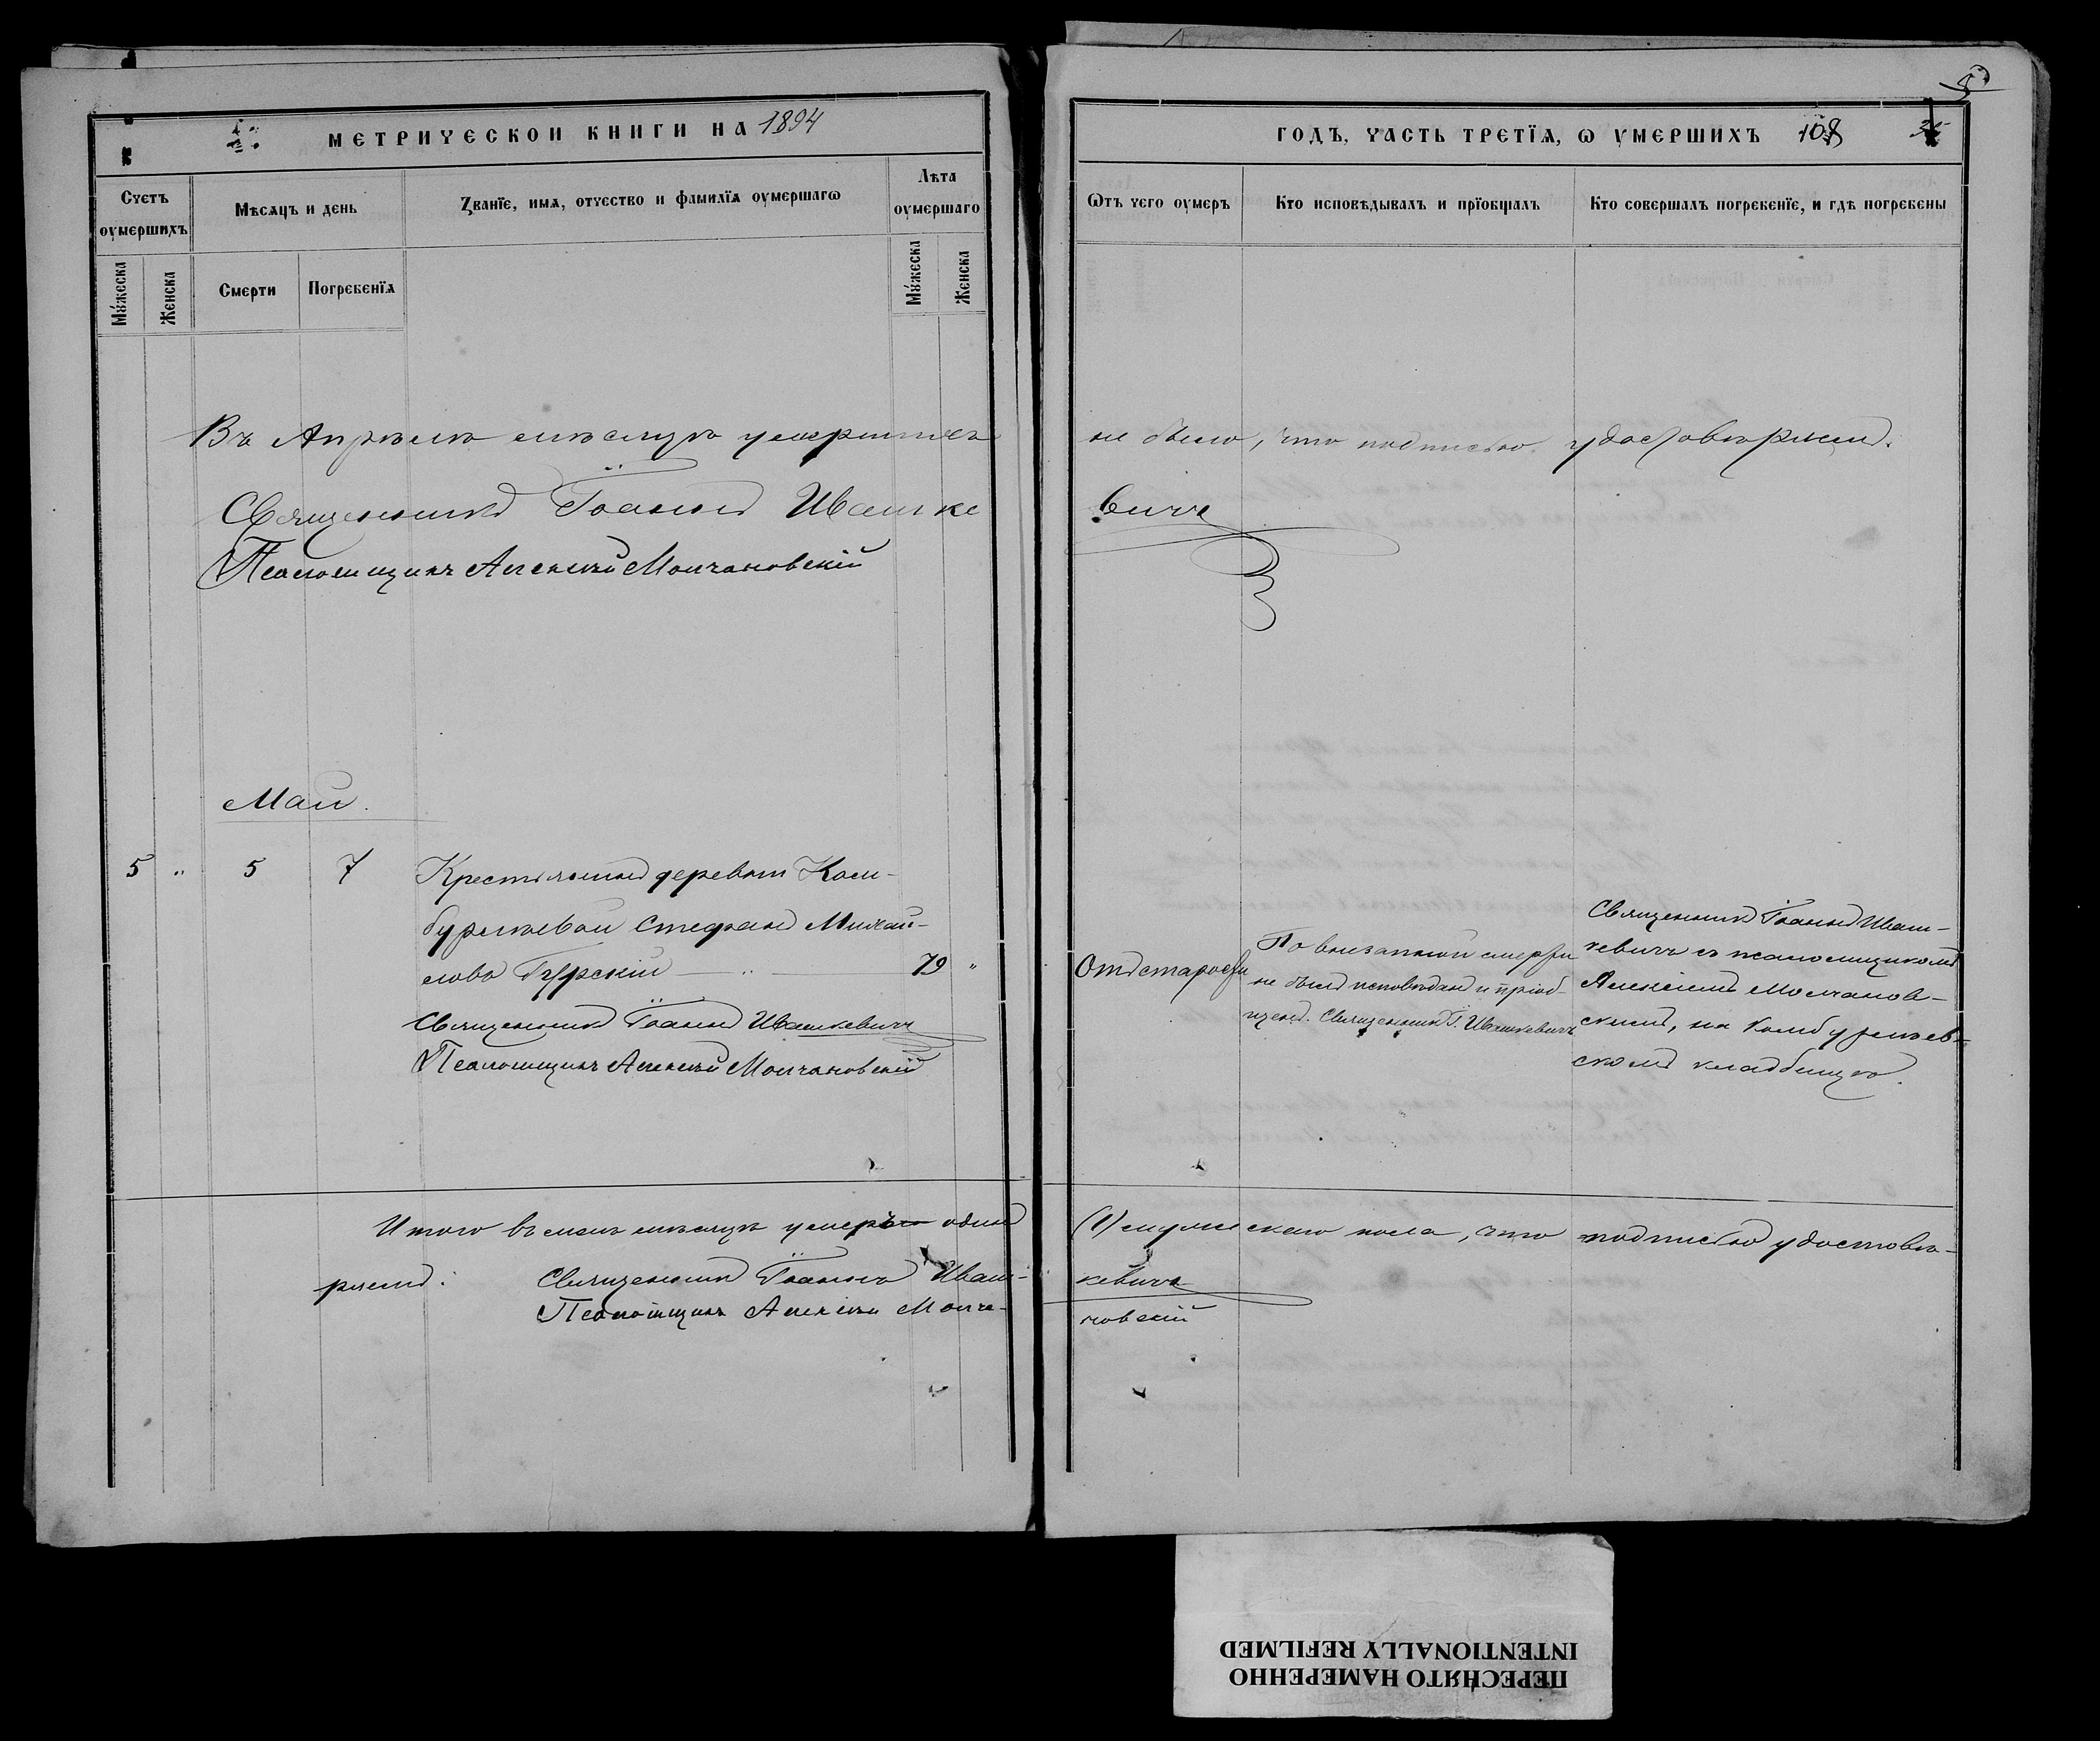 МЕТРИЧЕСКОИ КНИГИ НА 1894
ГОДЪ, ЧАСТЬ ТРЕТІЯ, Ѡ УМЕРШИХЪ 108
Счетъ оумершихъ
Мѣсяцъ и день
Званіе, имя, отчество и фамилія оумершагѡ
Лѣта оумершаго
Ѿтъ чего оумеръ
Кто исповѣдывалъ и пріобщалъ
Кто совершалъ погребеніе, и гдѣ погребены
Мужеска
Женска
Смерти
Погребенія
Мужеска
Женска
Въ Апрѣлѣ мѣсяцѣ умершихъ не было, что подписью удостовѣряемъ.
Священникъ Іоаннъ Ивашкевичъ
Псаломщикъ Алексѣй Молчановскій
Май.
5 " 5 7 Крестьянинъ деревни
Стефанъ Михаи-
ловъ Гурскій — " — 79 "
Священникъ Іоаннъ Ивашкевичъ
Псаломщикъ Алексѣй Молчановскій
Отъ старости
По внезапной смерти
не былъ исповѣданъ и пріоб-
щенъ. Священникъ І. Ивашкевичъ
Священникъ Іоаннъ Иваш-
кевичъ съ псаломщикомъ
Алексѣемъ Молчанов-
скимъ, на
скомъ кладбищѣ.
Итого въ маѣ мѣсяцѣ умеръ одинъ (1) мужескаго пола, что подписью удостовѣ-
ряемъ: Священникъ Іоаннъ Иваш-кевичъ
Псаломщикъ Алексѣй Молча-новскій
ПЕРЕСНЯТО НАМЕРЕННО
INTENTIONALLY REFILMED